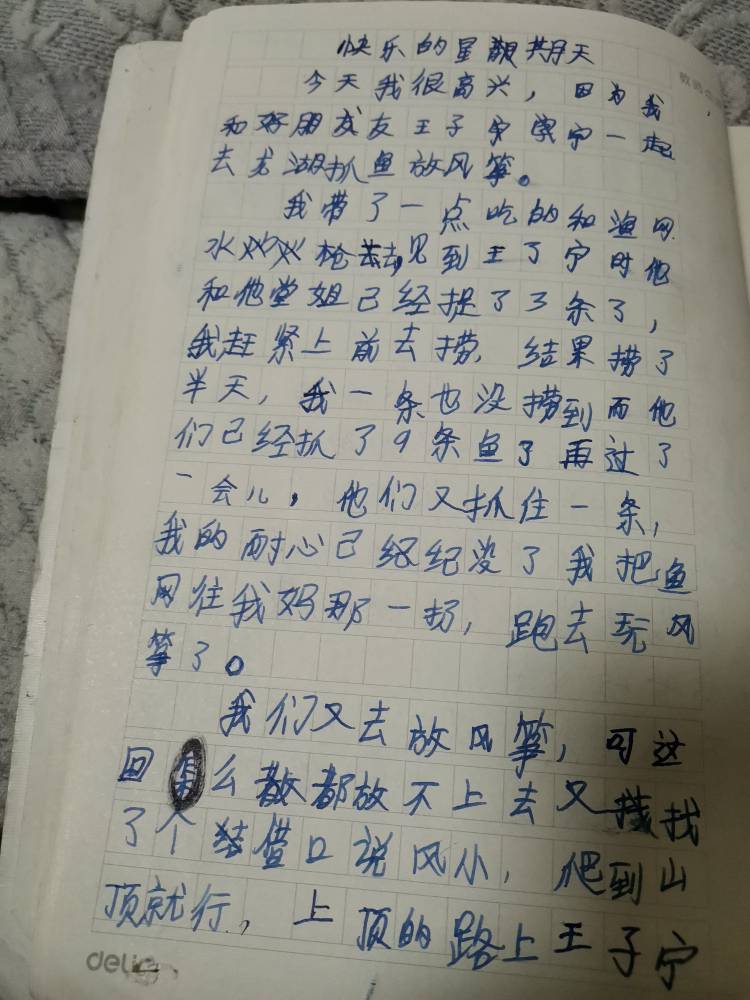 快乐的星期天
今天我很高兴，因为我
和好朋友王子宁一起
去龙湖抓鱼放风筝。
我带了一点吃的和渔网
水枪去，见到王子宁时他
和他堂姐已经捉了3条了，
我赶紧上前去捞，结果捞了
半天，我一条也没捞到而他
们已经抓了9条鱼了再过了
一会儿，他们又抓住一条，
我的耐心已经没了我把鱼
网往我妈那一扔，跑去玩风
筝了。
我们又去放风筝，可这
回么都放不上去又找
了个借口说风小，爬到山
顶就行，上顶的路上王子宁
deli